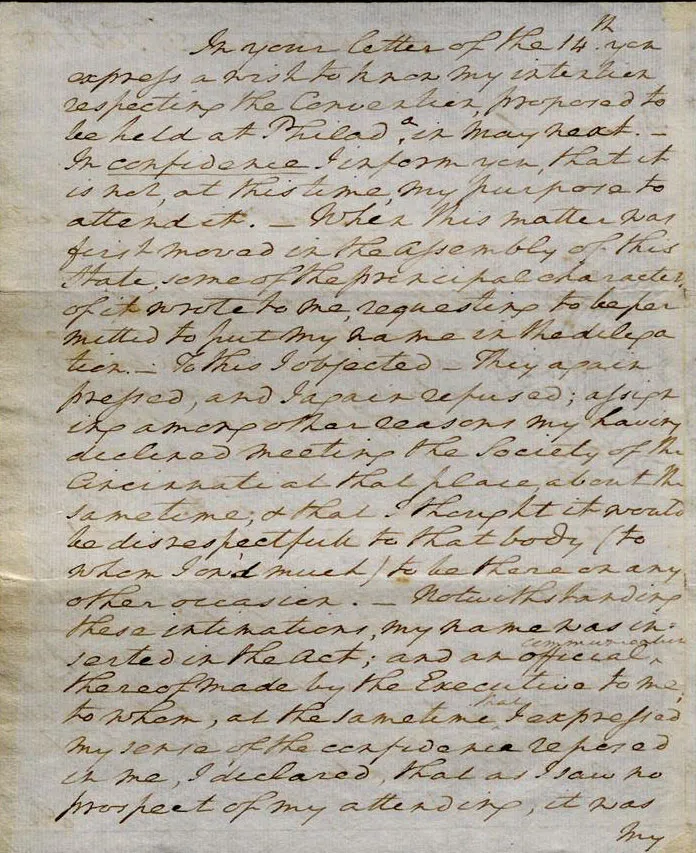 In your letter of the 14th. you
express a wish to know my intention
respecting the Convention, proposed to
be held at Philada. in May next. —
In confidence I inform you, that it
is not, at this time, my purpose to
attend it. — When this matter was
first moved in the Assembly of this
State, some of the principal characters
of it wrote to me, requesting to be per
mitted to put my name in the delega
tion. — To this I objected — They again
pressed, and I again refused; assign
ing among other reasons my having
declined meeting the Society of the
Cincinnati at that place, about the
same time; & that I thought it would
be disrespectfull to that body (to
whom I ow'd much) to be there on any
other occasion. — Notwithstanding
these intimations, my name was in-
serted in the Act; and an official communication
thereof made by the Executive to me,
to whom, at the same time that I expressed
my sense of the confidence reposed
in me, I declared, that as I saw no
prospect of my attending, it was
my